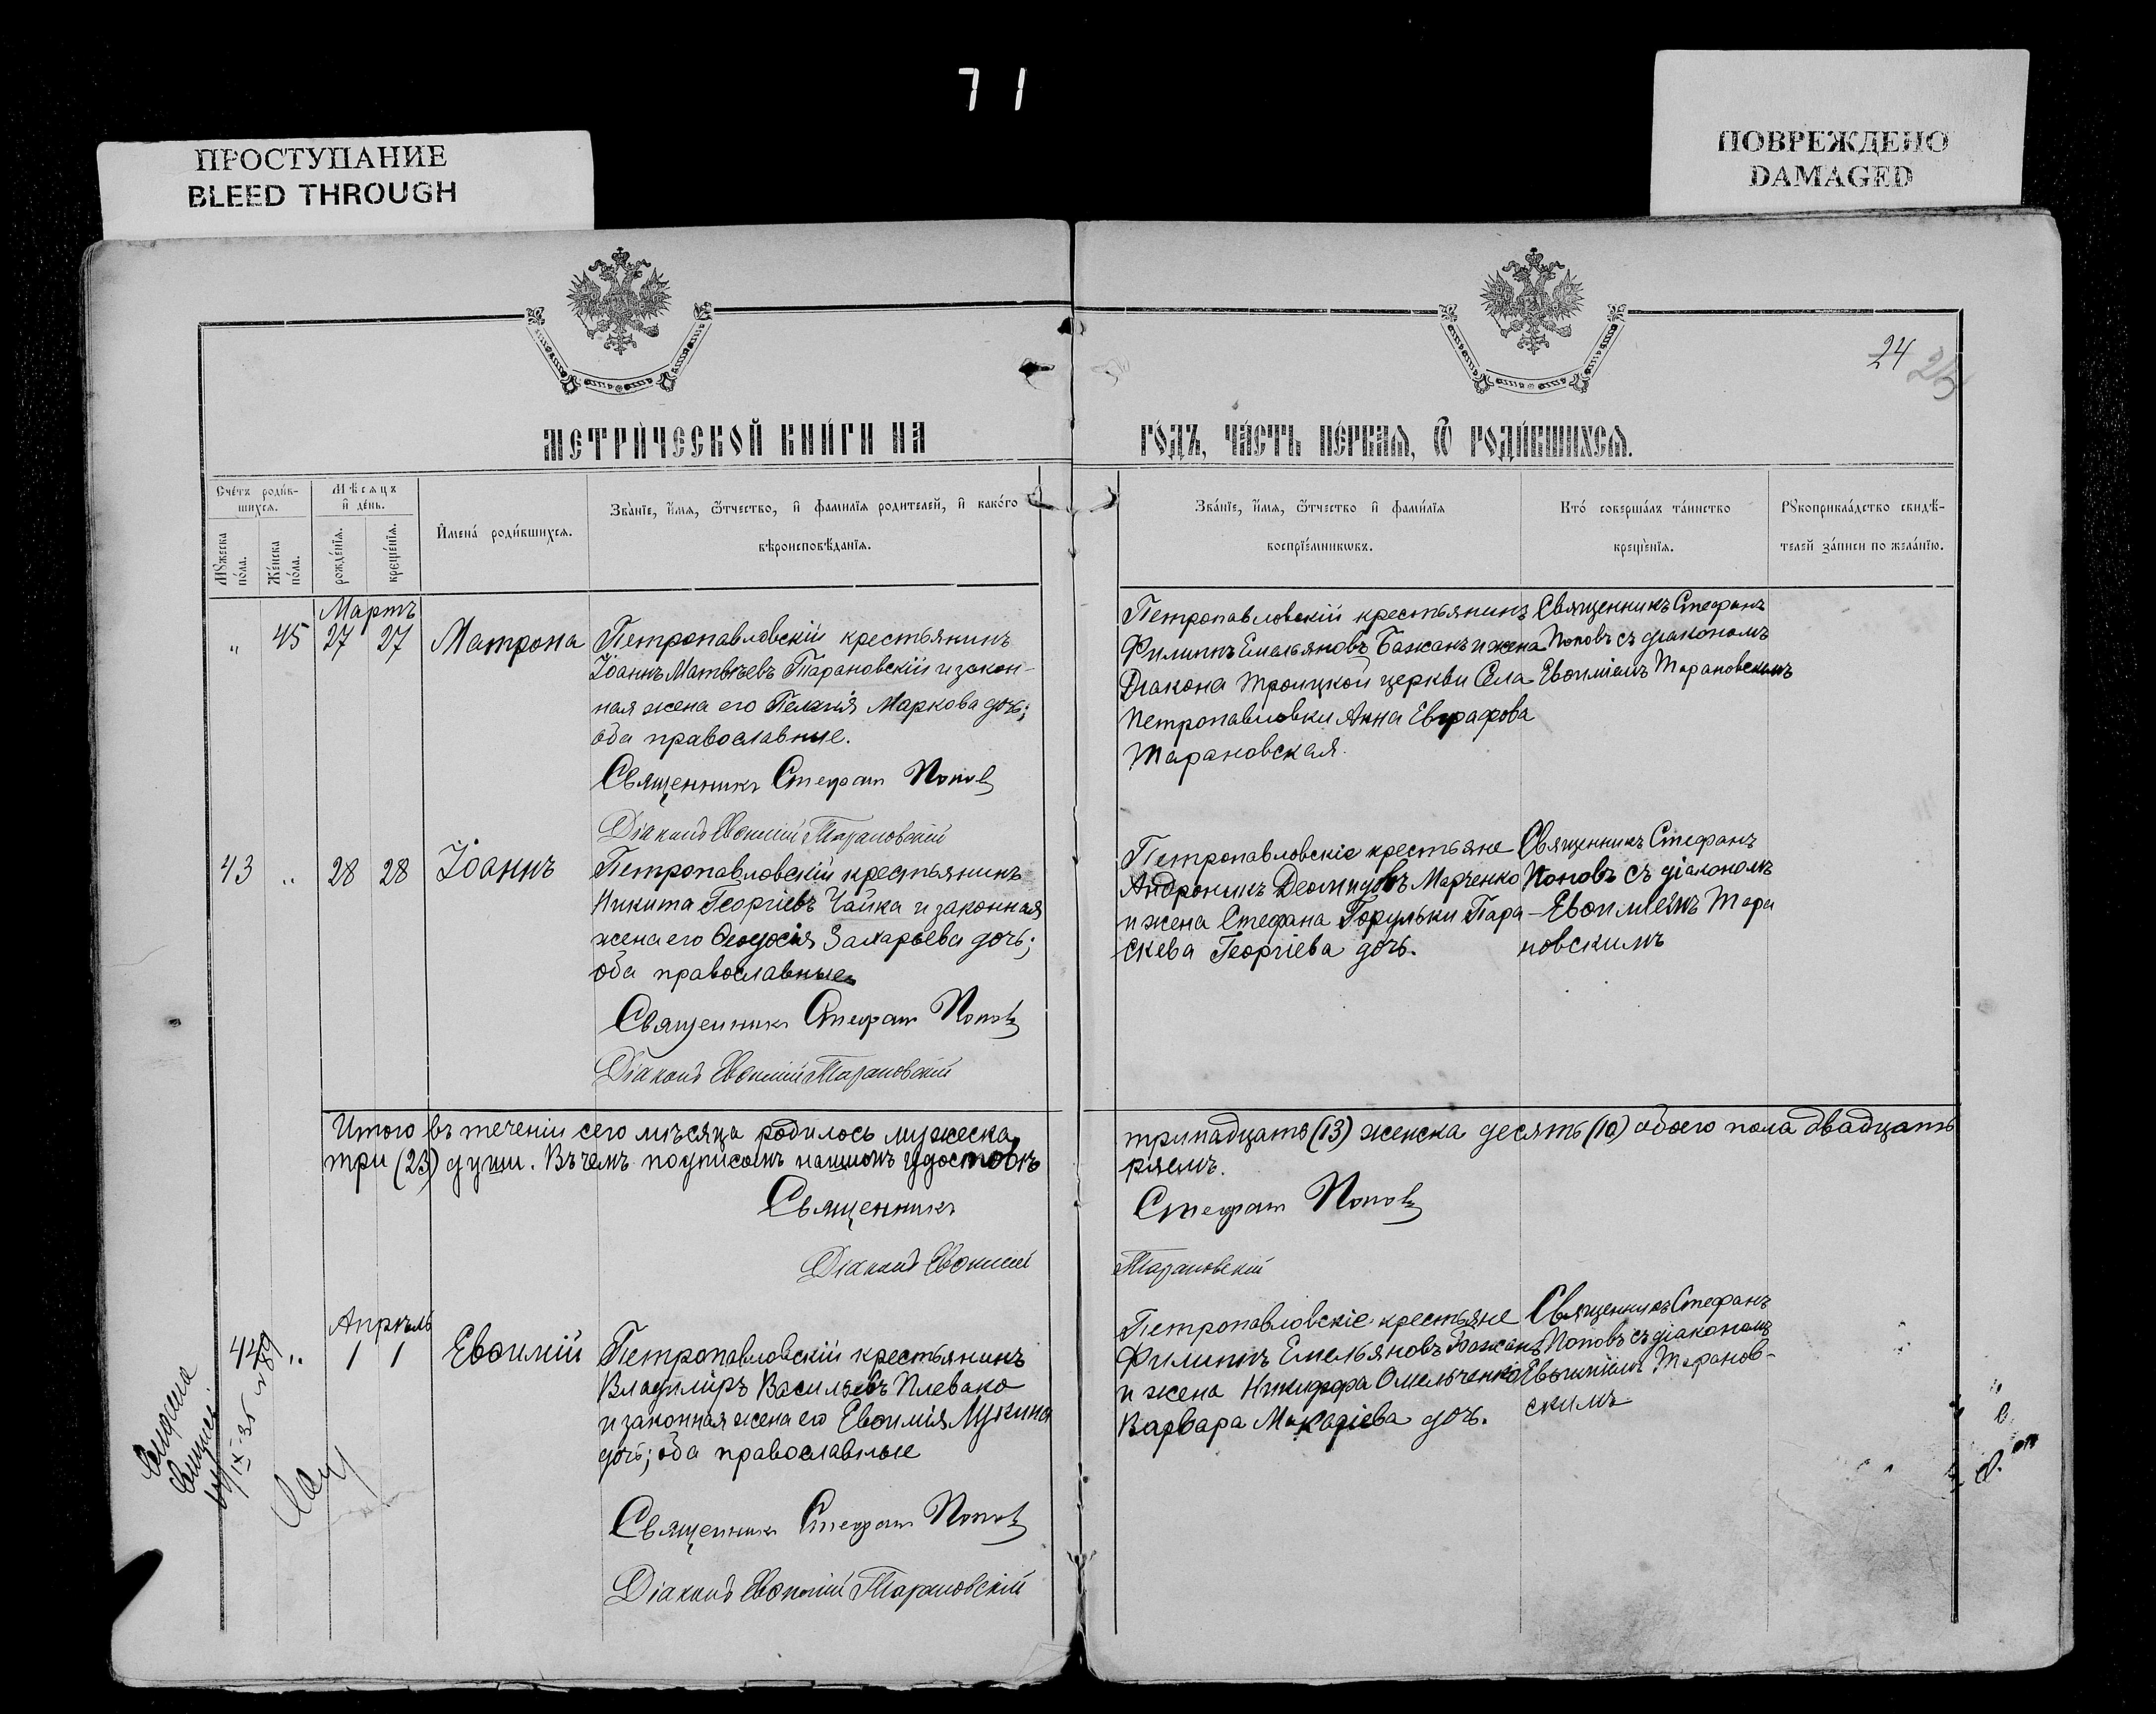 71
ПРОСТУПАНИЕ
BLEED THROUGH
ПОВРЕЖДЕНО
DAMAGED
24
25
МЕТРИ́ЧЕСКОЙ КНИ́ГИ НА
ГО́ДЪ, ЧА́СТЬ ПЕ́РВАЯ, Ѿ РОДИ́ВШИХСЯ.
Сче́тъ роди́в-
шихся.
Мѣсяцъ
и де́нь.
Мꙋжеска
по́ла.
Же́нска
по́ла.
рожде́нїѧ.
креще́нїѧ.
Имена̀ роди́вшихся.
Зва́нїе, и҆́мя, ѻ҆́тчество, и҆ фамилїя родителей, и҆ како́го
вѣроисповѣ́данїя.
Зва́нїе, и҆́мя, ѻ҆́тчество и҆ фами́лїя
воспрїе́мникѡвъ.
Кто́ соверша́лъ та́инство
креще́нїя.
Рꙋкоприкла́дство свидѣ́-
телей за́писи по жела́нїю.
Мартъ
" 45 27 27 Матрона
Петропавловскій крестьянинъ
Іоаннъ Матвѣевъ Тарановскій и закон-
ная жена его Пелагія Маркова дочь;
оба православные.
Священникъ Стефанъ Поповъ
Діаконъ Евѳимій Тарановскій
Петропавловскій крестьянинъ
Филиппъ Емельяновъ Бажанъ и жена
Діакона Троицкой церкви Села
Петропавловки Анна Евграфова
Тарановская.
Священникъ Стефанъ
Поповъ съ діакономъ
Евѳиміемъ Тарановскимъ
43 " 28 28 Іоаннъ
Петропавловскій крестьянинъ
Никита Георгіевъ Чайка и законная
жена его Ѳеодосія Захарьева дочь;
оба православные
Священникъ Стефанъ Поповъ
Діаконъ Евѳимій Тарановскій
Петропавловскіе крестьяне
Андроникъ Деомидовъ Марченко
и жена Стефана Горульки Пара-
скева Георгіева дочь.
Священникъ Стефанъ
Поповъ съ діакономъ
Евѳиміемъ Тара
новскимъ
Итого въ теченіи сего мѣсяца родилось мужеска
тринадцать (13) женска десять (10) обоего пола двадцать
три (23) души. Въ чемъ подписомъ нашимъ удостовѣ
ряемъ.
Священникъ
Стефанъ Поповъ
Діаконъ Евѳимій
Тарановскій
Апрѣль
44 " 1 1 Евѳимій
Петропавловскій крестьянинъ
Владиміръ Васильевъ Плевако
и законная жена его Евѳимія Лукина
дочь; оба православные
Священникъ Стефанъ Поповъ
Діаконъ Евѳимій Тарановскій
Петропавловскіе крестьяне
Филиппъ Емельяновъ Бажанъ
и жена Никифора Омельченко
Варвара Макаріева дочь.
Священникъ Стефанъ
Поповъ съ діакономъ
Евѳиміемъ Таранов-
скимъ